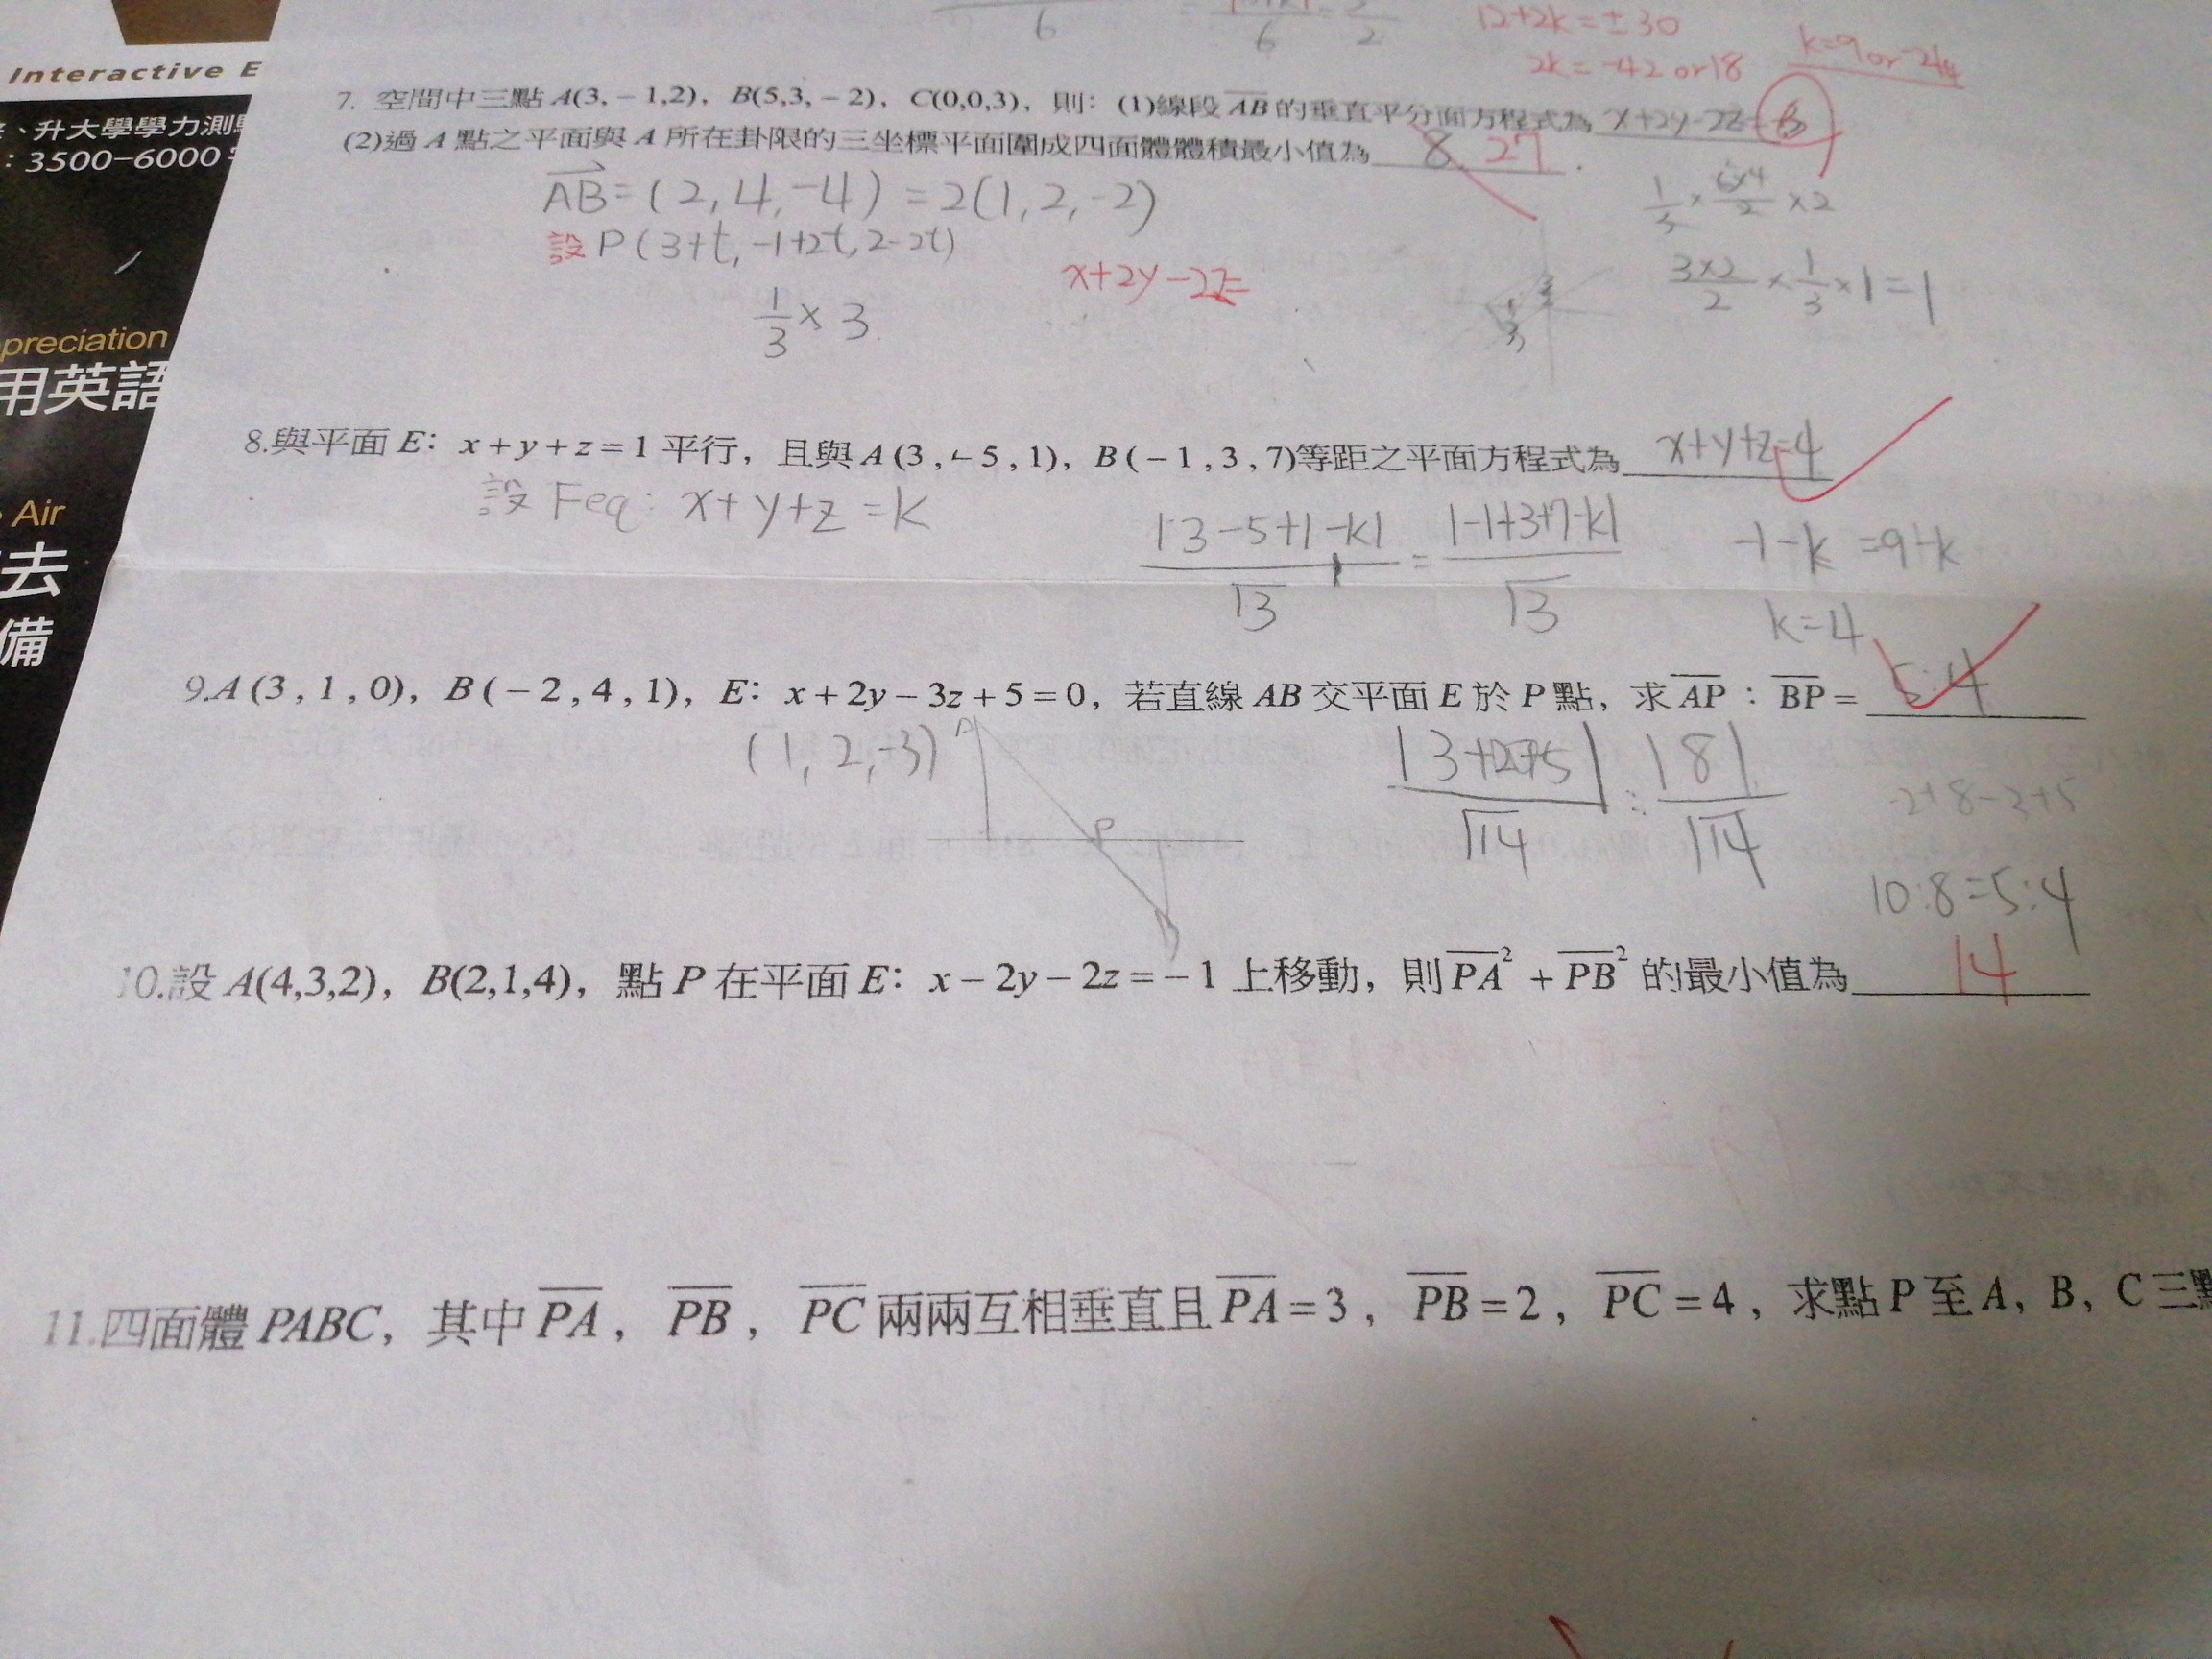 6
6
2
12+2k=±30
2k=-42 or 18
k=9 or -21
Interactive E
、升大學學力測
: 3500-6000
preciation
用英語
Air
去
備
7. 空間中三點 A(3,-1,2), B(5,3,-2), C(0,0,3), 則: (1)線段 AB 的垂直平分面方程式為 x+2y-2z=
(2)過 A 點之平面與 A 所在卦限的三坐標平面圍成四面體體積最小值為 8 27 .
AB=(2,4,-4)=2(1,2,-2)
1/3×6×4/2×2
設 P(3+t,-1+2t,2-2t)
x+2y-2z=
3×2/2×1/3×1=1
1/3×3
8.與平面 E: x+y+z=1 平行, 且與 A(3,-5,1), B(-1,3,7)等距之平面方程式為 x+y+z=4
設 Feq: x+y+z=k
|3-5+1-k|/√3=|-1+3+7-k|/√3
-1-k=9-k
k=4
9.A(3,1,0), B(-2,4,1), E: x+2y-3z+5=0, 若直線 AB 交平面 E 於 P 點, 求 AP : BP = 5:4
(1,2,-3)
A
P
B
|3+2+5|/√14 : |8|/√14
-2+8-3+5
10:8=5:4
10.設 A(4,3,2), B(2,1,4), 點 P 在平面 E: x-2y-2z=-1 上移動, 則 PA²+PB² 的最小值為 14
11.四面體 PABC, 其中 PA, PB, PC 兩兩互相垂直且 PA=3, PB=2, PC=4, 求點 P 至 A, B, C 三